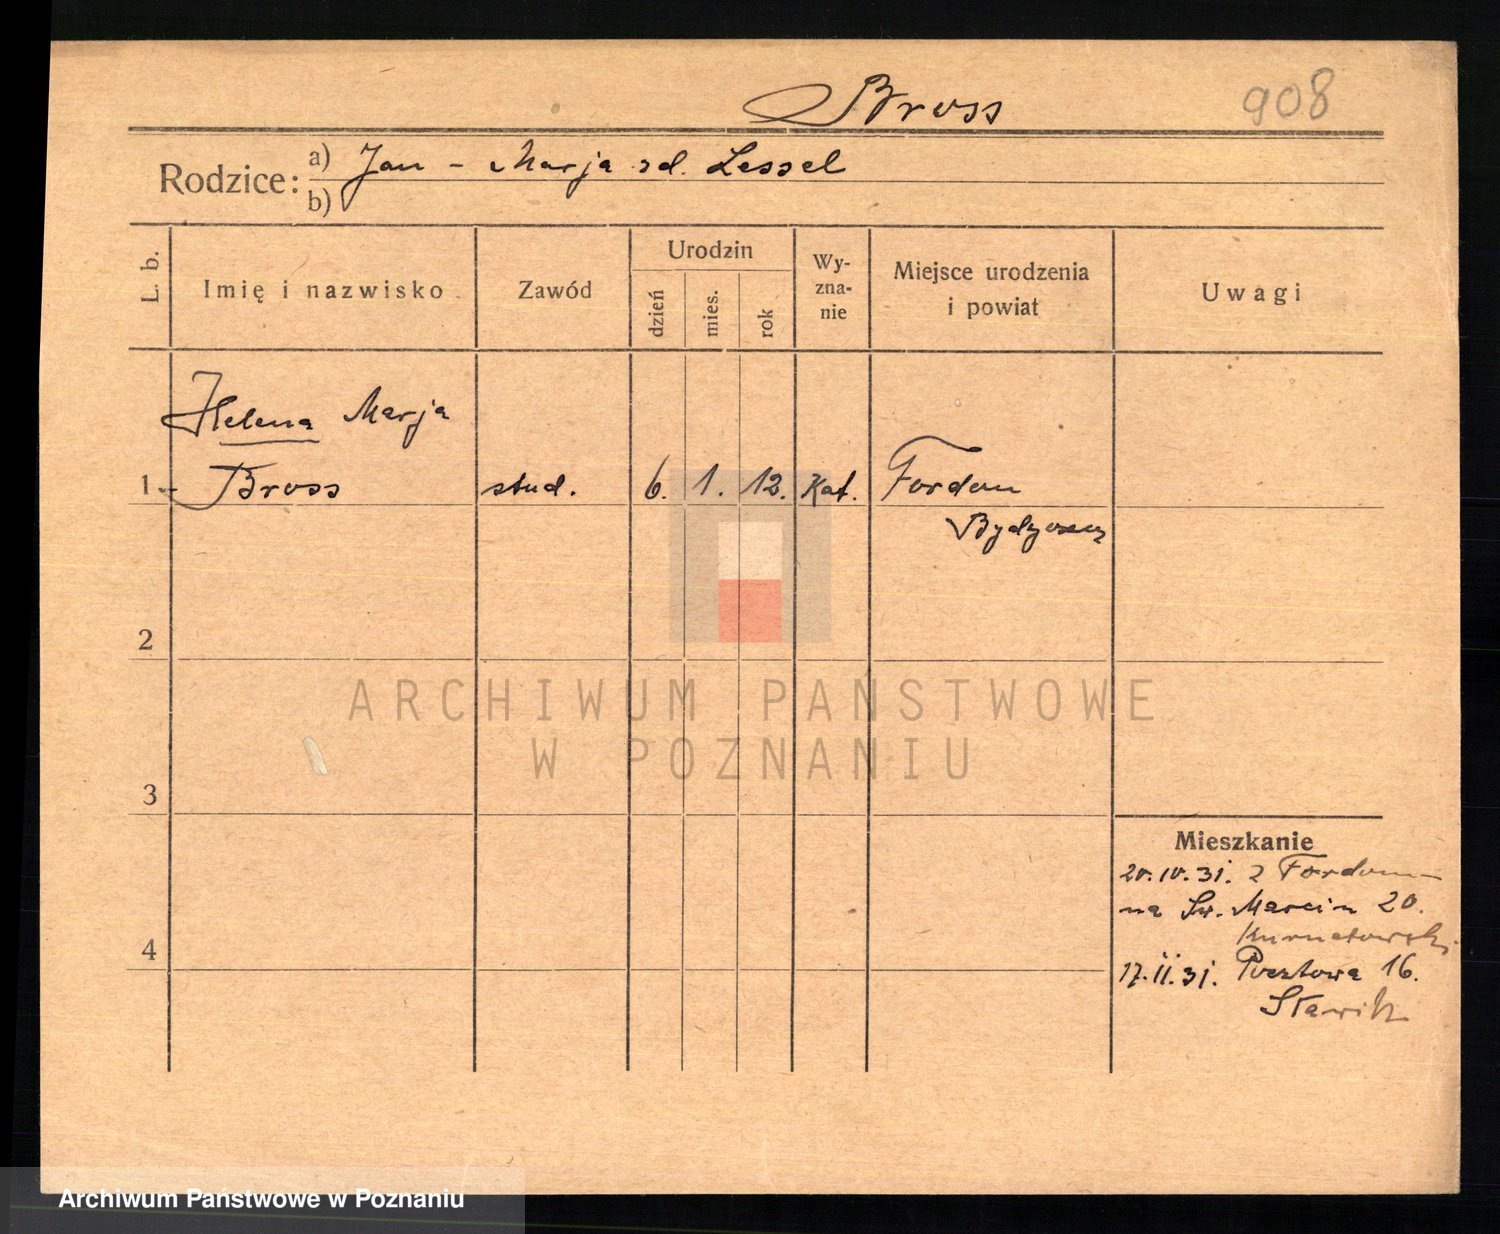 Bross
908
Rodzice:
a) Jan - Marja zd. Lessel
b)
L. b.
Imię i nazwisko
Zawód
Urodzin
dzień
mies.
rok
Wy-
zna-
nie
Miejsce urodzenia
i powiat
Uwagi
Helena Marja
1 Bross stud. 6. 1. 12. Kat. Fordon
Bydgoszcz
2
3
4
Mieszkanie
20.10.31. z Fordonu
na Św. Marcin 20.
Kurnatowski
17.11.31. Pocztowa 16.
ARCHIWUM PAŃSTWOWE
W POZNANIU
Archiwum Państwowe w Poznaniu